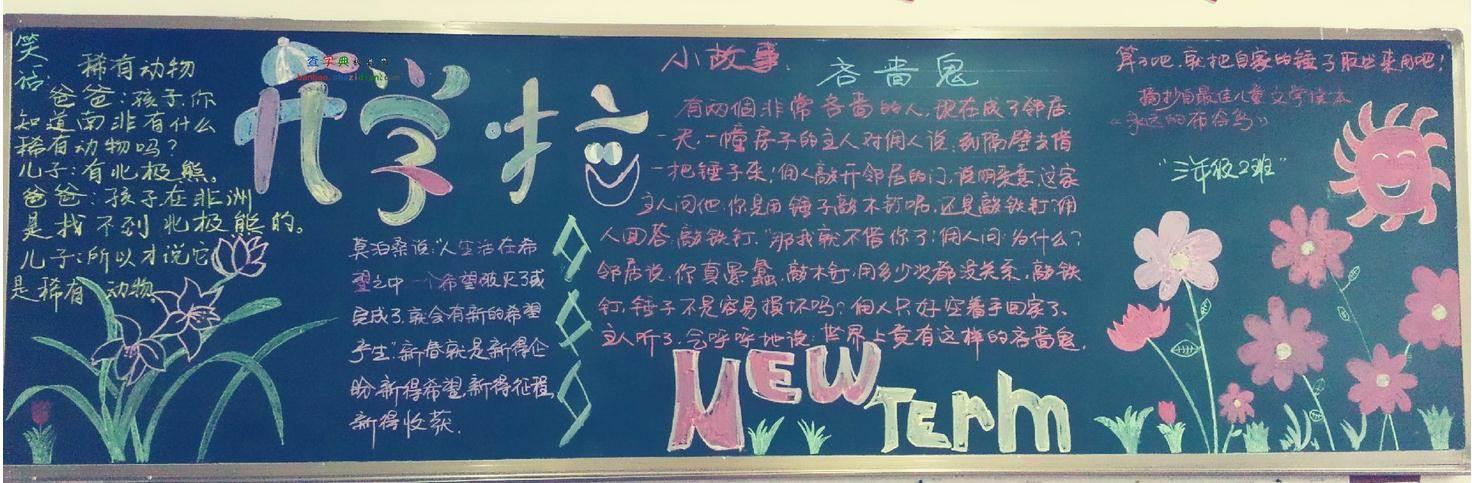 笑
话:
稀有动物
爸爸:孩子,你
知道南非有什么
稀有动物吗?
儿子:有北极熊。
爸爸:孩子在非洲
是找不到北极熊的。
儿子:所以才说它
是稀有动物
开学啦
莫泊桑说:“人生活在希
望之中 一个希望破灭了或
完成了,就会有新的希望
产生”新春就是新得企
盼,新得希望,新得征程,
新得收获.
小故事:
吝啬鬼
有两個非常吝啬的人,现在成了邻居.
一天,一幢房子的主人对佣人说,到隔壁去借
一把锤子来!佣人敲开邻居的门,说明来意,这家
主人问他,你是用锤子敲木钉呢,还是敲铁钉,佣
人回答,敲铁钉,“那我就不借你了!佣人问:为什么?
邻居说,你真愚蠢,敲木钉,用多少次都没关系,敲铁
钉,锤子不是容易损坏吗?佣人只好空着手回家了.
主人听了,气呼呼地说:世界上竟有这样的吝啬鬼,
算了吧,就把自家的锤子取出来用吧!
摘抄自最佳儿童文学读本
《永远的布谷鸟》
“三年级2班”
NEW Term
查字典